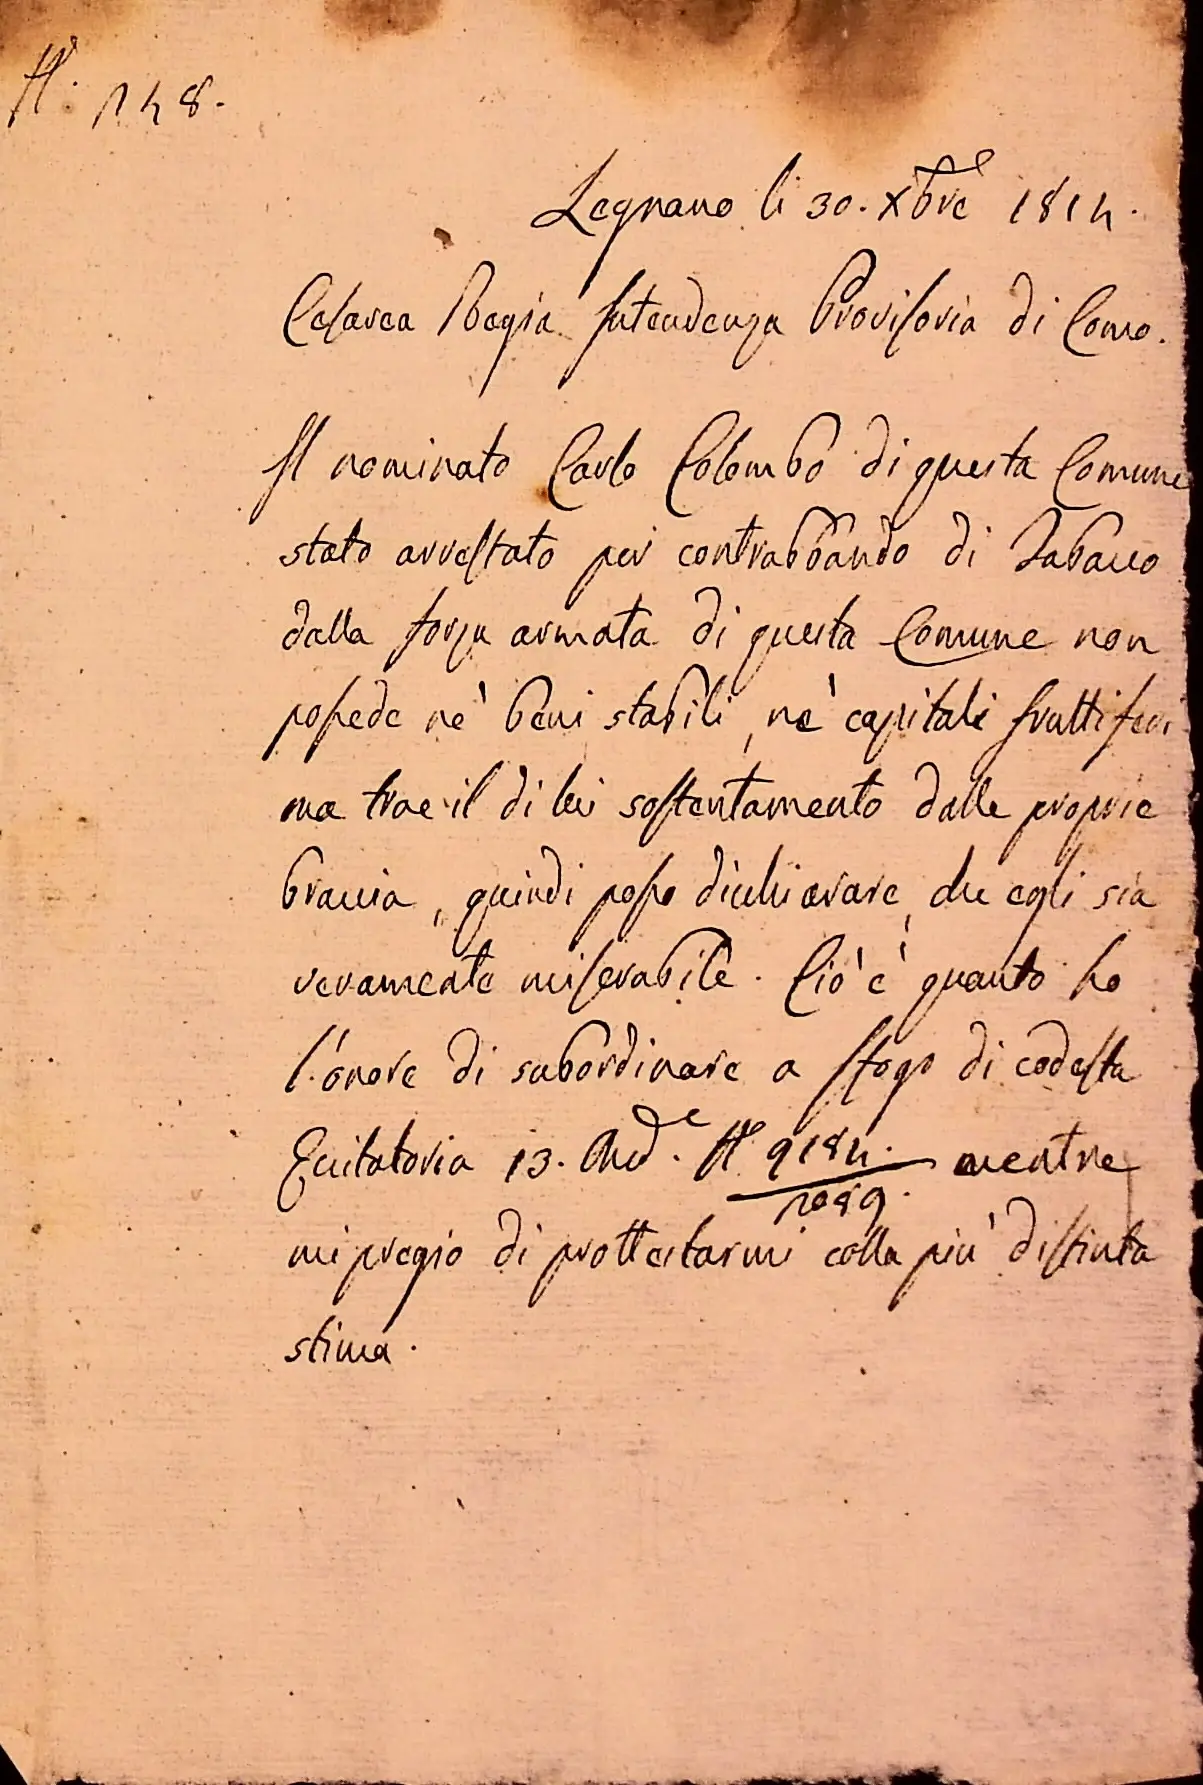 N.° 148.
Legnano li 30. Xbre 1814.
Cesarea Regia Intendenza Provisoria di Como.
Il nominato Carlo Colombo di questa Comune
stato arrestato per contrabbando di Tabacco
dalla forza armata di questa Comune non
possede nè beni stabili, nè capitali fruttiferi
ma trae il di lui sostentamento dalle proprie
braccia, quindi posso dichiarare, che egli sia
veramente miserabile. Ciò è quanto ho
l'onore di subordinare a sfogo di codesta
Ecitatoria 13. And.e N.° 9184.
1089.
mentre
mi pregio di prottestarmi colla più distinta
stima.